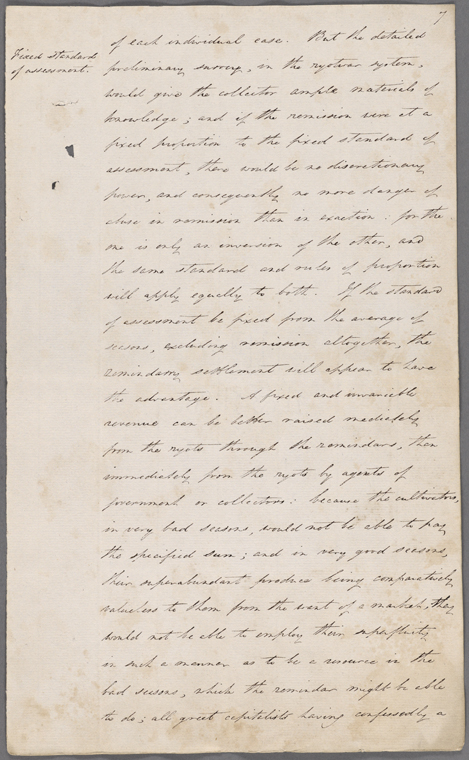 7
Fixed standard
of assessment.
of each individual case. But the detailed
preliminary survey, in the ryotwar system,
would give the collector ample materials of
knowledge; and if the remission were at a
fixed proportion to the fixed standard of
assessment, there would be no discretionary
power, and consequently no more danger of
abuse in remission than in exaction: for the
one is only an inversion of the other, and
the same standard and rules of proportion
will apply equally to both. If the standard
of assessment be fixed from the average of
seasons, excluding remission altogether, the
zemindarry settlement will appear to have
the advantage. A fixed and invariable
revenue can be better raised mediately
from the ryots through the zemindars, than
immediately from the ryots by agents of
government or collectors: because the cultivators,
in very bad seasons, would not be able to pay
the specified sum; and in very good seasons,
their superabundant produce being comparatively
valueless to them from the want of a market, they
would not be able to employ their superfluity
in such a manner as to be a resource in the
bad seasons, which the zemindar might be able
to do; all great capitalists having confessedly a